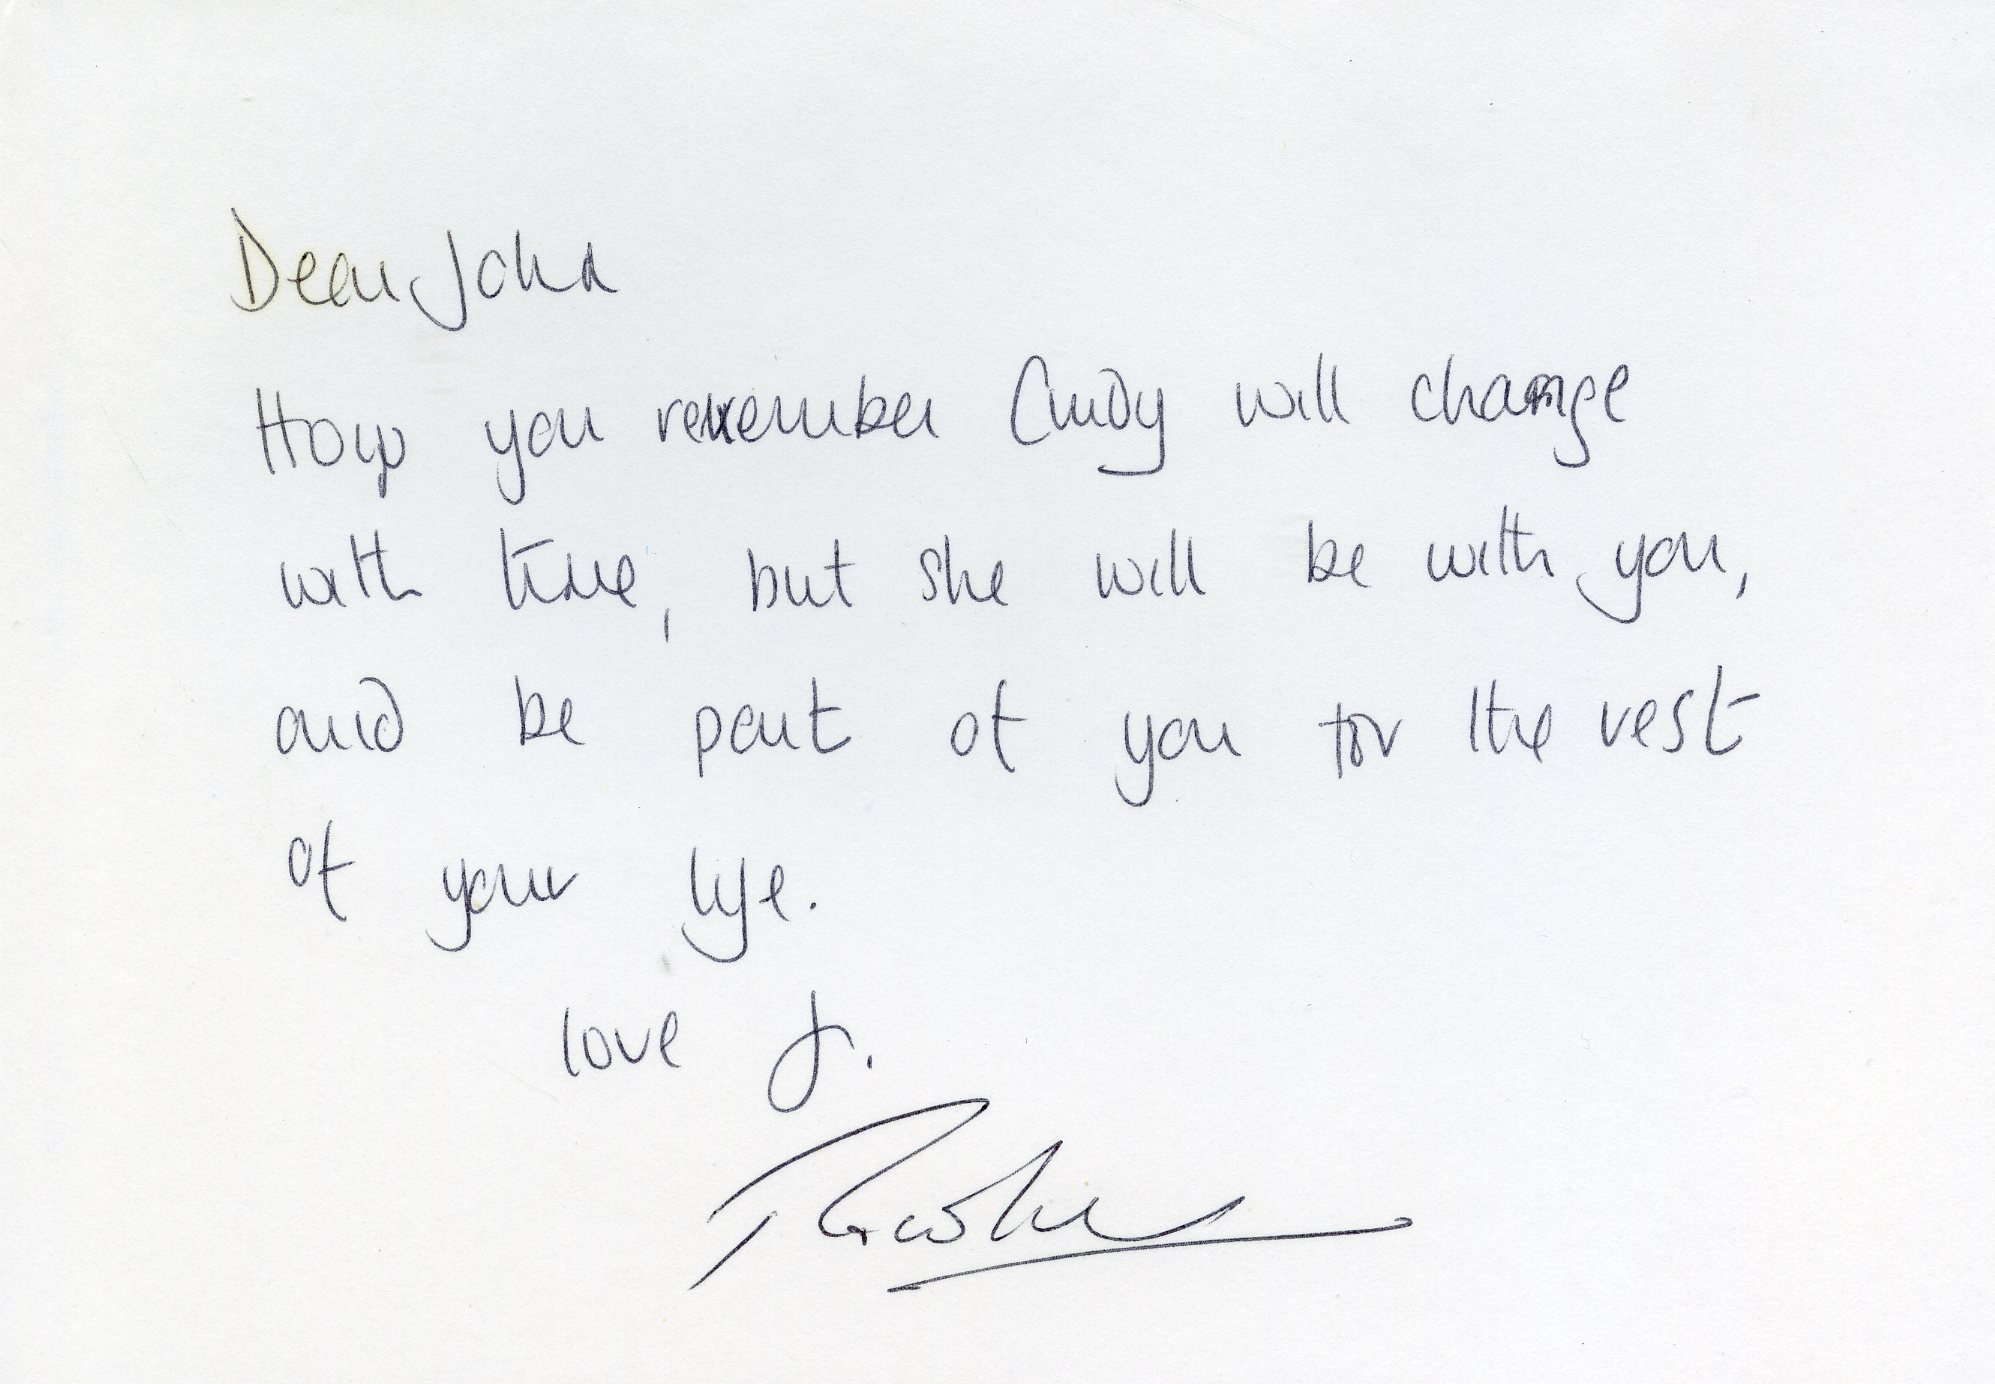 Dear John
How you remember Cindy will change
with time, but she will be with you,
and be part of you for the rest
of your life.
love J.